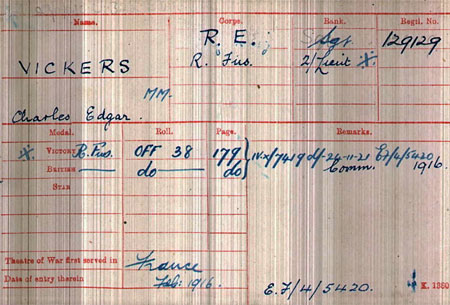 Name. Corps. Rank. Regtl. No.
R. E. Sgt 129129
VICKERS R. Fus. 2/Lieut *
MM.
Charles Edgar.
Medal. Roll. Page. Remarks.
*. VICTORY R. Fus. OFF 38 179 IVX/7419 d/-24-11-21 E7/4/5420
BRITISH do do Comm. 1916.
STAR
Theatre of War first served in France
Date of entry therein Feb: 1916.
E.7/4/5420. K. 1380